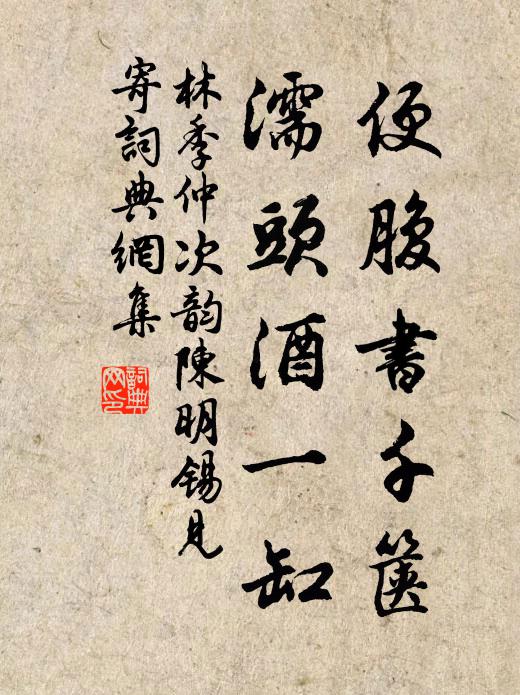 便腹書千篋
濡頭酒一缸
林季仲次韵陳明錫見
寄詞典網集
詞典
网印